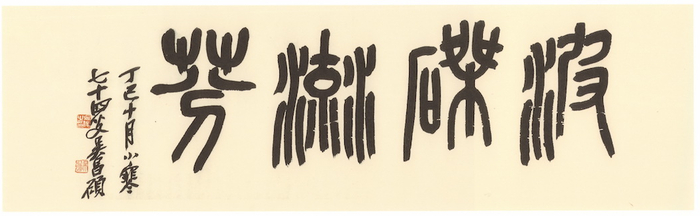 波磔流芳
丁巳十月小寒
七十四叟吳昌碩